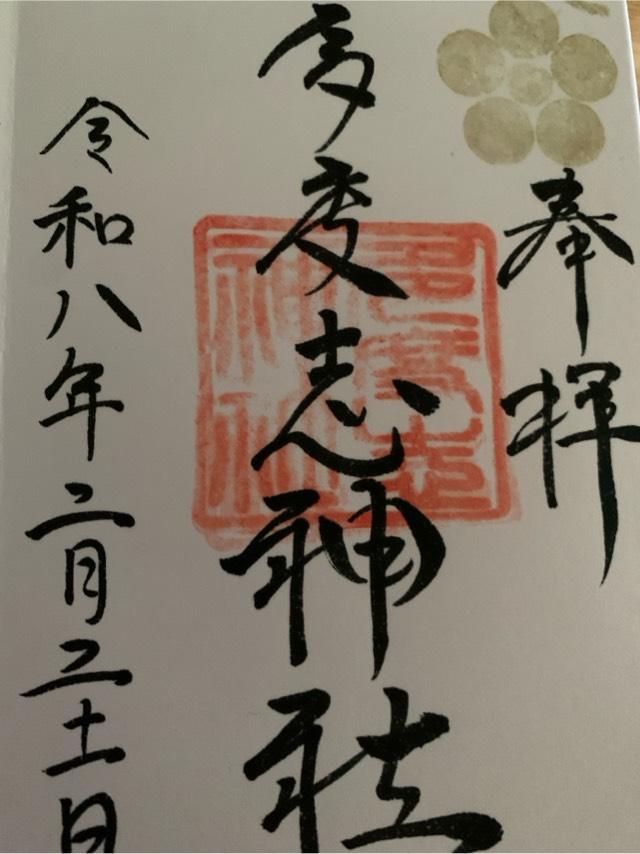 奉拝
多度志神社
多度志
神社
令和八年二月二十一日